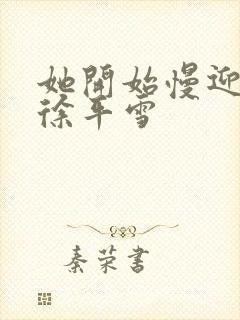 她開始慢迎
徐平雪
秦荣書